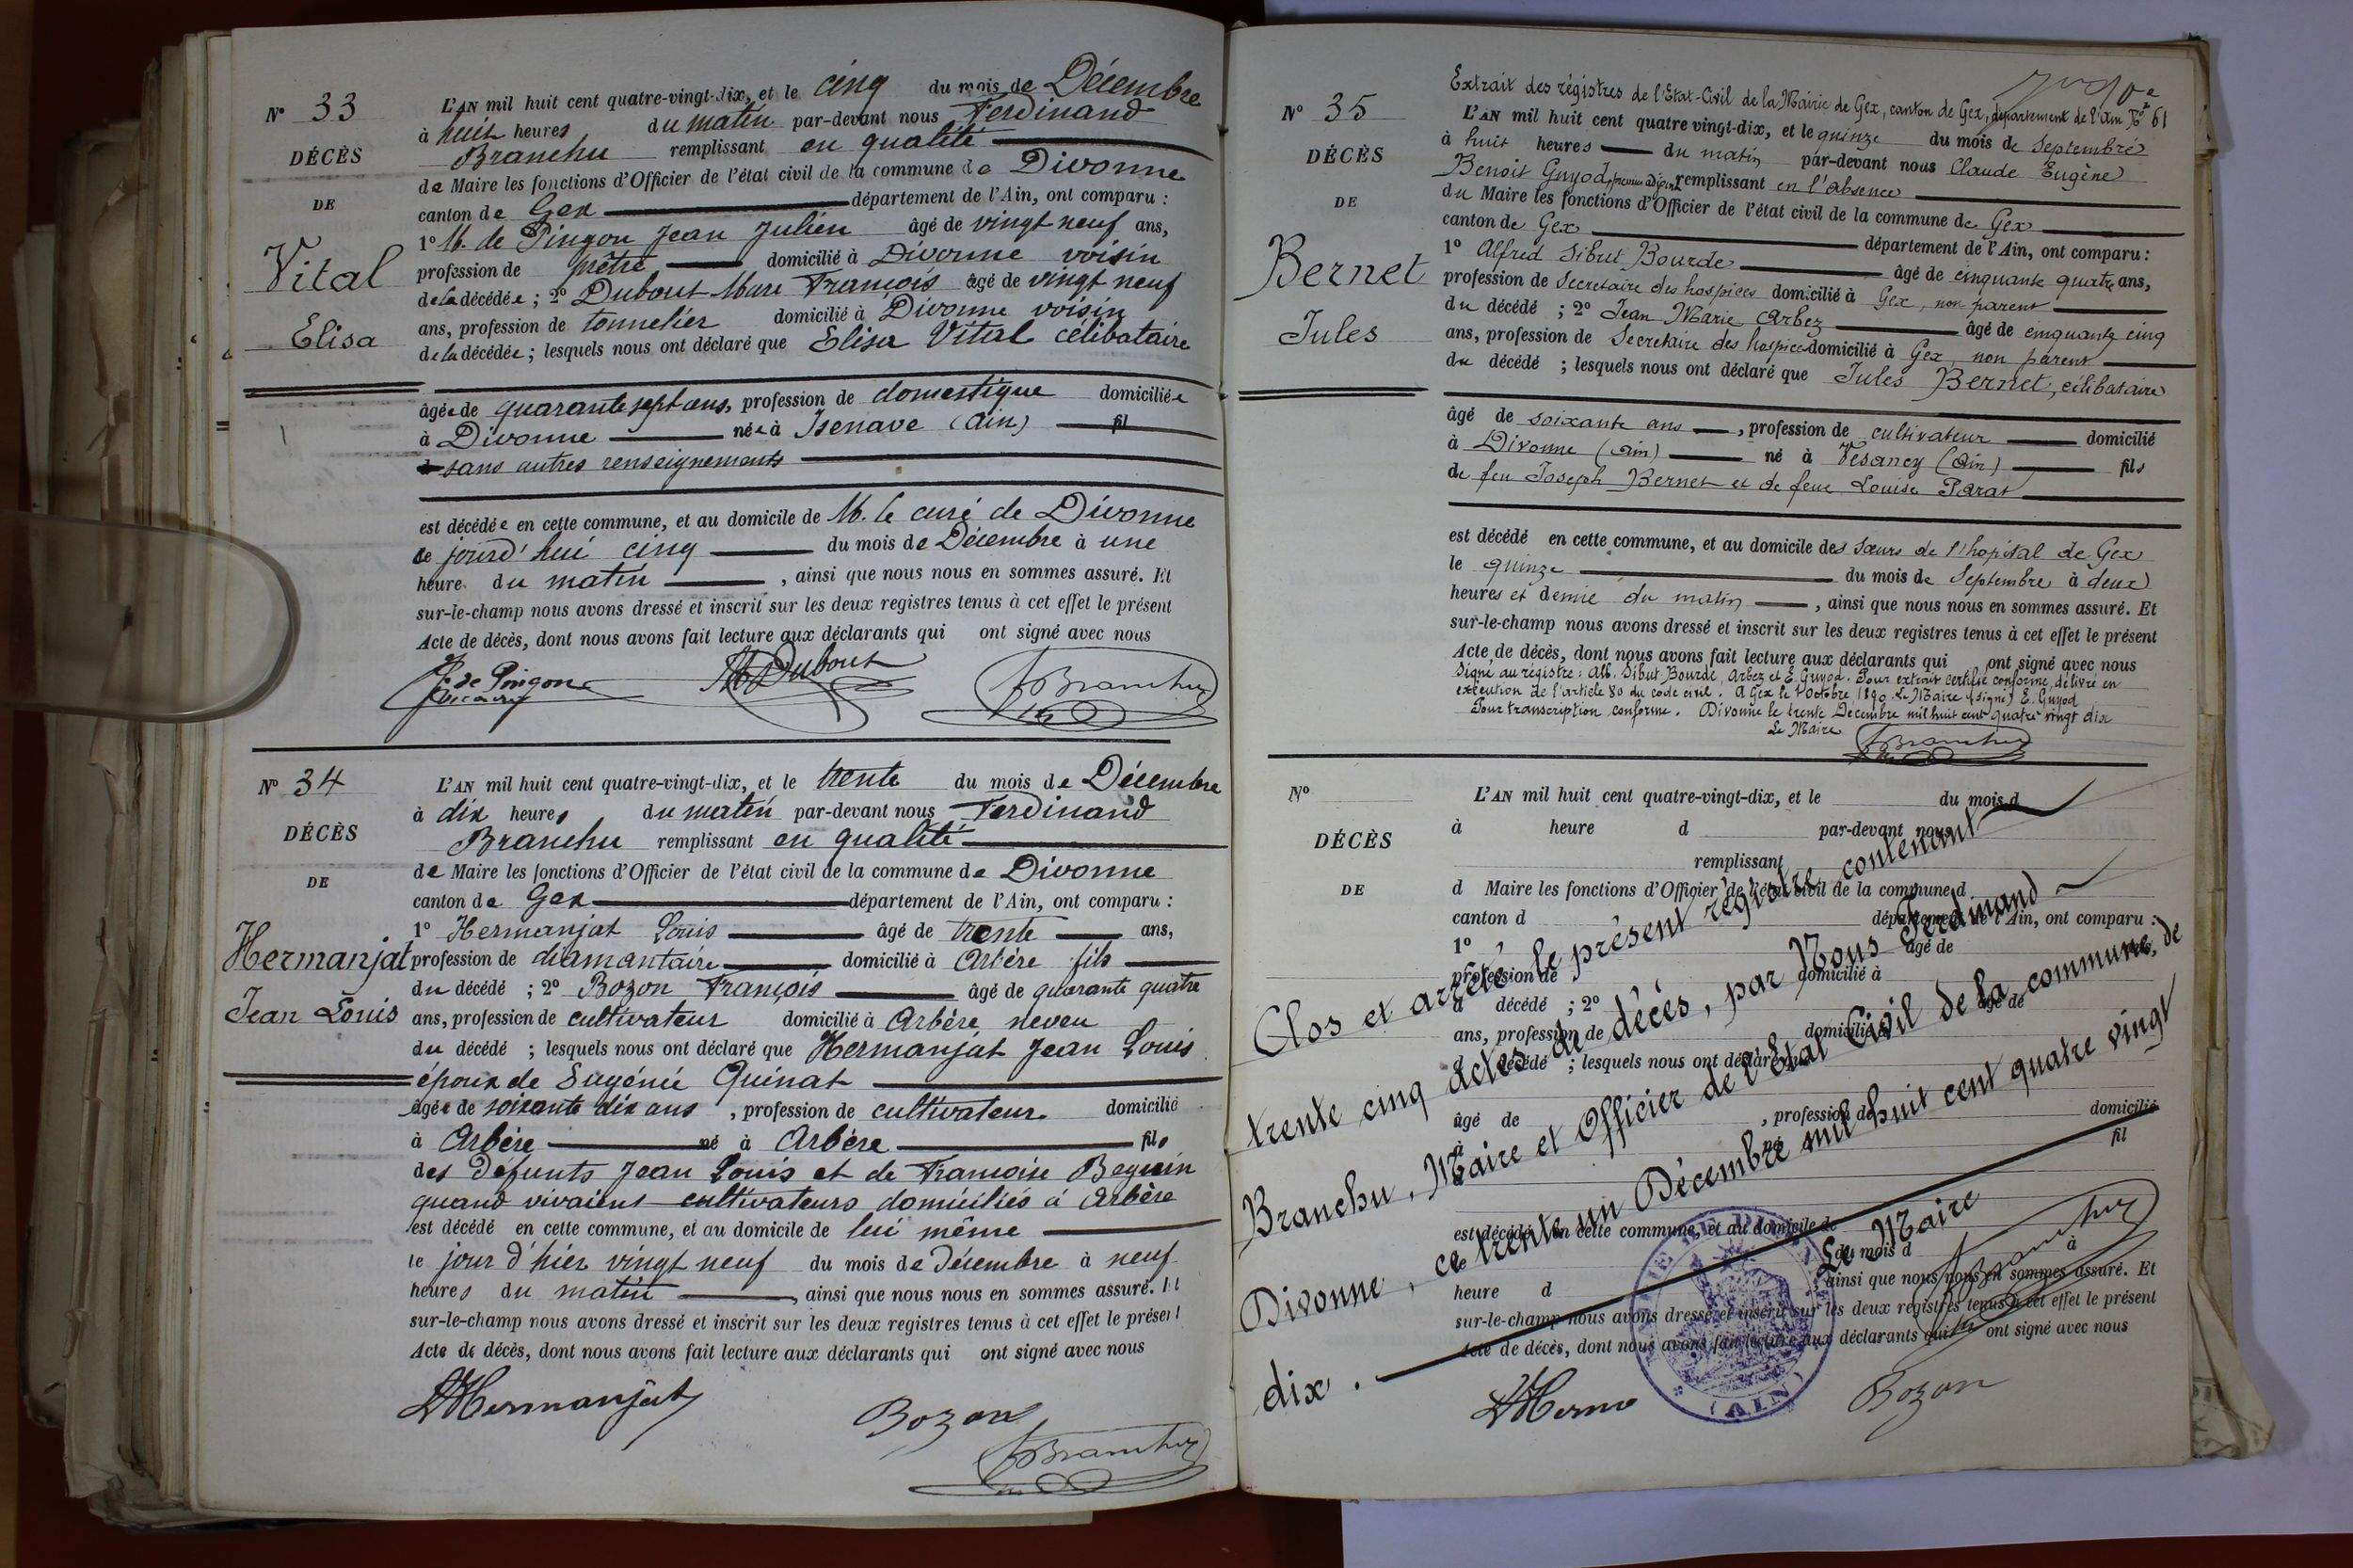 N° 33
DÉCÈS
DE
Vital
Elisa
L'AN mil huit cent quatre-vingt-dix, et le cinq du mois de Décembre
à huit heures du matin par-devant nous Ferdinand
Branchu remplissant en qualité
de Maire les fonctions d'Officier de l'état civil de la commune de Divonne
canton de Gex département de l'Ain, ont comparu :
1° M. de Pingon Jean Julien âgé de vingt neuf ans,
profession de prêtre domicilié à Divonne voisin
de la décédée ; 2° Dubout Marc François âgé de vingt neuf
ans, profession de tonnelier domicilié à Divonne voisin
de la décédée ; lesquels nous ont déclaré que Elisa Vital célibataire
âgée de quarante sept ans, profession de domestique domiciliée
à Divonne née à Isenave (Ain) fil
sans autres renseignements
est décédée en cette commune, et au domicile de M. le curé de Divonne
ce jourd'hui cinq du mois de Décembre à une
heure du matin , ainsi que nous nous en sommes assuré. Et
sur-le-champ nous avons dressé et inscrit sur les deux registres tenus à cet effet le présent
Acte de décès, dont nous avons fait lecture aux déclarants qui ont signé avec nous
J. de Pingon M Dubout F Branchu
vicaire
N° 34
DÉCÈS
DE
Hermanjat
Jean Louis
L'AN mil huit cent quatre-vingt-dix, et le trente du mois de Décembre
à dix heures du matin par-devant nous Ferdinand
Branchu remplissant en qualité
de Maire les fonctions d'Officier de l'état civil de la commune de Divonne
canton de Gex département de l'Ain, ont comparu :
1° Hermanjat Louis âgé de trente ans,
profession de diamantaire domicilié à Arbère fils
du décédé ; 2° Bozon François âgé de quarante quatre
ans, profession de cultivateur domicilié à Arbère neveu
du décédé ; lesquels nous ont déclaré que Hermanjat Jean Louis
époux de Eugénie Quinat
âgée de soixante dix ans , profession de cultivateur domicilié
à Arbère né à Arbère fils
des défunts Jean Louis et de Francoise Beguin
quand vivaient cultivateurs domiciliés à Arbère
est décédé en cette commune, et au domicile de lui même
le jour d'hier vingt neuf du mois de Décembre à neuf
heures du matin , ainsi que nous nous en sommes assuré. Et
sur-le-champ nous avons dressé et inscrit sur les deux registres tenus à cet effet le présent
Acte de décès, dont nous avons fait lecture aux déclarants qui ont signé avec nous
L Hermanjat Bozon
F Branchu
Extrait des régistres de l'Etat-Civil de la Mairie de Gex, canton de Gex, département de l'Ain N° 61
N° 35
DÉCÈS
DE
Bernet
Jules
L'AN mil huit cent quatre vingt-dix, et le quinze du mois de Septembre
à huit heures du matin par-devant nous Claude Eugène
Benoit Guyod, premier adjoint remplissant en l'absence
du Maire les fonctions d'Officier de l'état civil de la commune de Gex
canton de Gex département de l'Ain, ont comparu :
1° Alfred Sibut Bourde âgé de cinquante quatre ans,
profession de Secretaire des hospices domicilié à Gex, non parent
du décédé ; 2° Jean Marie Arbez âgé de cinquante cinq
ans, profession de Secretaire des hospices domicilié à Gex, non parent
du décédé ; lesquels nous ont déclaré que Jules Bernet, célibataire
âgé de soixante ans , profession de cultivateur domicilié
à Divonne (Ain) né à Vesancy (Ain) fils
de feu Joseph Bernet et de feue Louise Parat
est décédé en cette commune, et au domicile des Sœurs de l'hopital de Gex
le quinze du mois de Septembre à deux
heures et demie du matin , ainsi que nous nous en sommes assuré. Et
sur-le-champ nous avons dressé et inscrit sur les deux registres tenus à cet effet le présent
Acte de décès, dont nous avons fait lecture aux déclarants qui ont signé avec nous
Signé au régistre : Alf. Sibut Bourde, Arbez et E. Guyod. Pour extrait certifié conforme, délivré en
exécution de l'article 80 du code civil. A Gex le 1 Octobre 1890. Le Maire (signé) E. Guyod
Pour transcription conforme. Divonne le trente Décembre mil huit cent quatre vingt dix
Le Maire
F Branchu
N°
DÉCÈS
DE
L'AN mil huit cent quatre-vingt-dix, et le du mois d
à heure d par-devant nous
remplissant
d Maire les fonctions d'Officier de l'état civil de la commune d
canton d département de l'Ain, ont comparu :
1° âgé de ans,
profession de domicilié à
d décédé ; 2° âgé de
ans, profession de domicilié à
d décédé ; lesquels nous ont déclaré que
âgé de , profession de domicilié
à né à fil
est décédé en cette commune, et au domicile de
le du mois d à
heure d , ainsi que nous nous en sommes assuré. Et
sur-le-champ nous avons dressé et inscrit sur les deux registres tenus à cet effet le présent
Acte de décès, dont nous avons fait lecture aux déclarants qui ont signé avec nous
Clos et arrêté le présent régistre contenant
trente cinq actes de décès, par Nous Ferdinand
Branchu, Maire et Officier de l'Etat Civil de la commune de
Divonne, ce trente un Décembre mil huit cent quatre vingt
dix.
Le Maire
F Branchu
MAIRIE DE DIVONNE
(AIN)
L Herma
Bozon